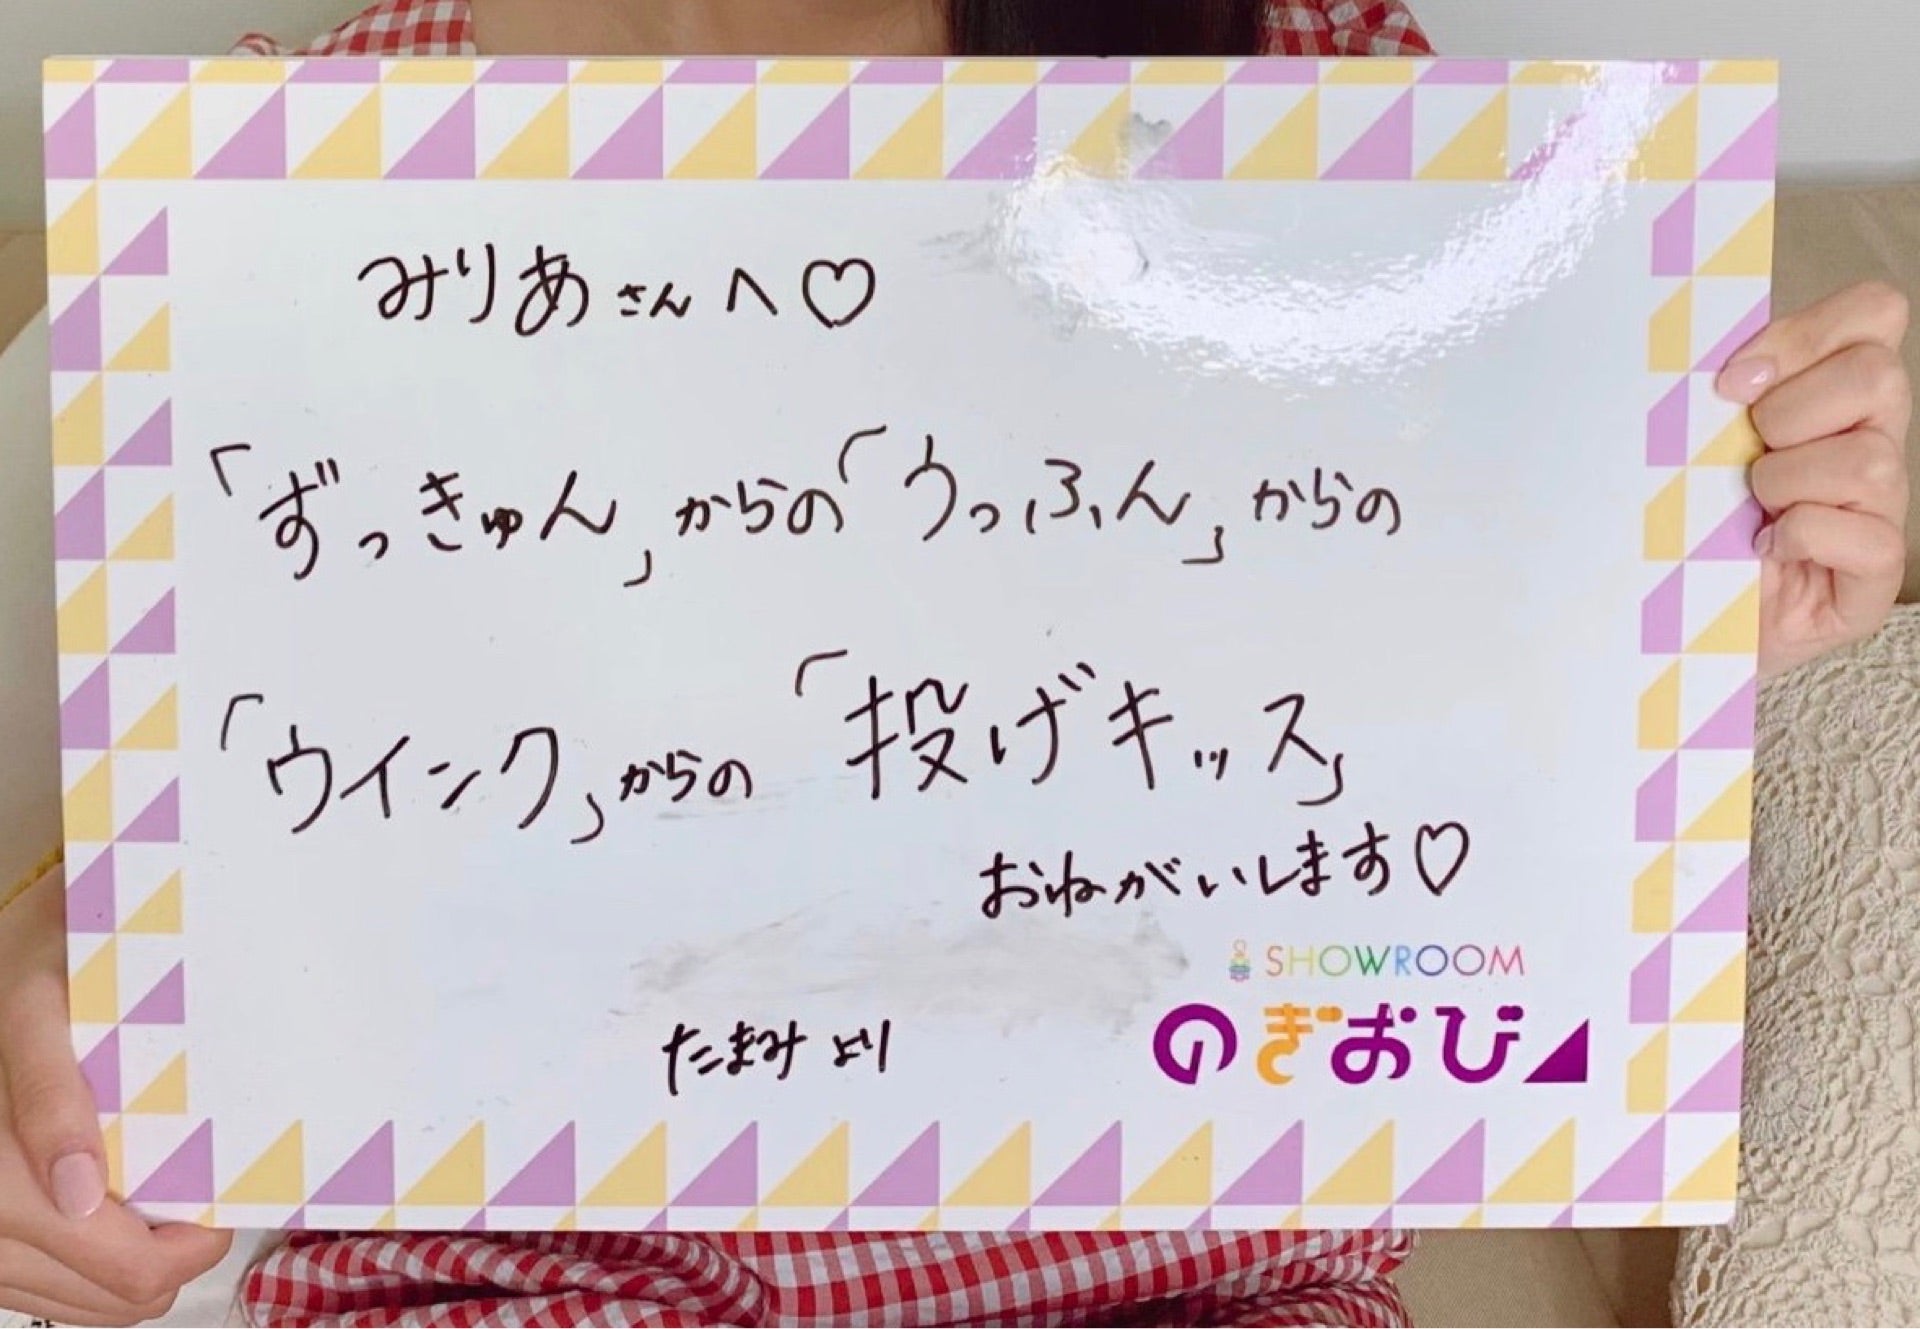 みりあさんへ♡
「ずっきゅん」からの「うっふん」からの
「ウインク」からの「投げキッス」
おねがいします♡
SHOWROOM
のぎおび
たまみより